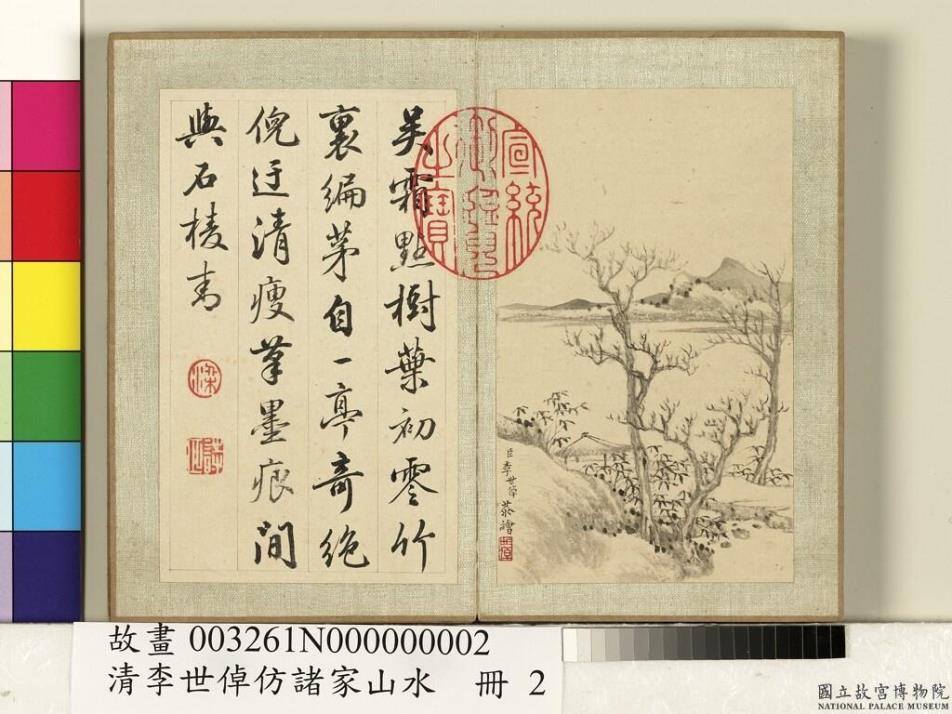 吳霜點樹葉初零竹
裏編茅自一亭奇絕
倪迂清瘦筆墨痕間
與石棱青
宣統
御覽
之寶
臣李世倬恭繪
故畫 003261N000000002
清李世倬仿諸家山水 冊 2
國立故宮博物院
NATIONAL PALACE MUSEUM